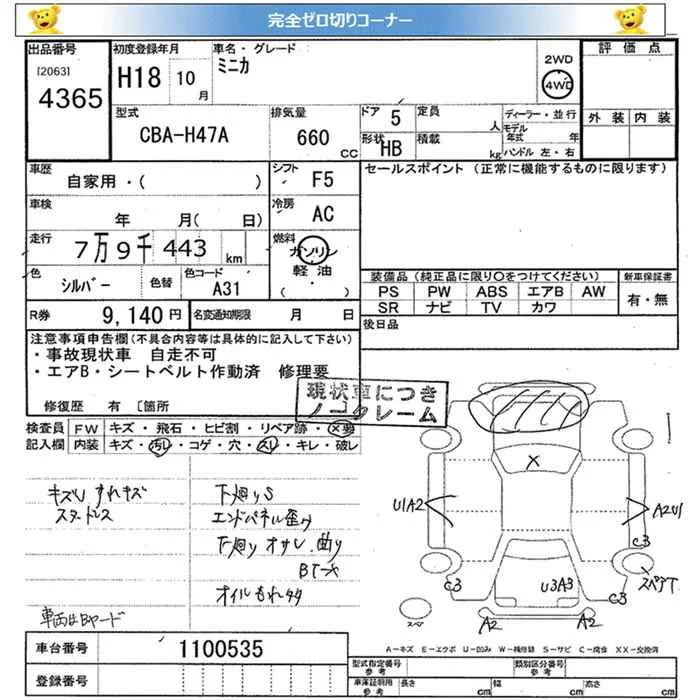 完全ゼロ切りコーナー
出品番号
[2063]
4365
初度登録年月
H18 10月
車名・グレード
ミニカ
2WD
4WD
評価点
外装 内装
型式
CBA-H47A
排気量
660 CC
ドア 5
形状 HB
定員 人
積載 kg
ディーラー・並行
モデル年式 年
ハンドル 左・右
車歴
自家用・( )
シフト F5
セールスポイント (正常に機能するものに限ります)
車検
年 月( 日)
冷房 AC
走行
7万9千443 km
燃料
ガソリン
軽油
( ・ )
色
シルバー
色替
色コード
A31
装備品(純正品に限り○をつけてください)
PS PW ABS エアB AW
SR ナビ TV カワ
新車保証書
有・無
R券 9,140円
名変通知期限 月 日
後日品
注意事項申告欄(不具合内容等は具体的に記入して下さい)
・事故現状車 自走不可
・エアB・シートベルト作動済 修理要
現状車につき
ノークレーム
修復歴 有 〔箇所
検査員記入欄
FW キズ・飛石・ヒビ割・リペア跡・×要
内装 キズ・汚レ・コゲ・穴・スレ・キレ・破レ
キズU すれキズ
スタッドレス
下廻りS
エンドパネル歪み
下廻り オサレ、曲り
オイルもれ
車両はBヤード
X
U1A2
A2U1
C3
スペアT
C3
U3A3
C3
A2
A2
A-キズ E-エクボ U-凹み W-補修跡 S-サビ C-腐食 XX-交換済
車台番号 1100535
登録番号
型式指定番号 参考
類別区分番号 参考
車庫証明用 参考 長さ cm 幅 cm 高さ cm